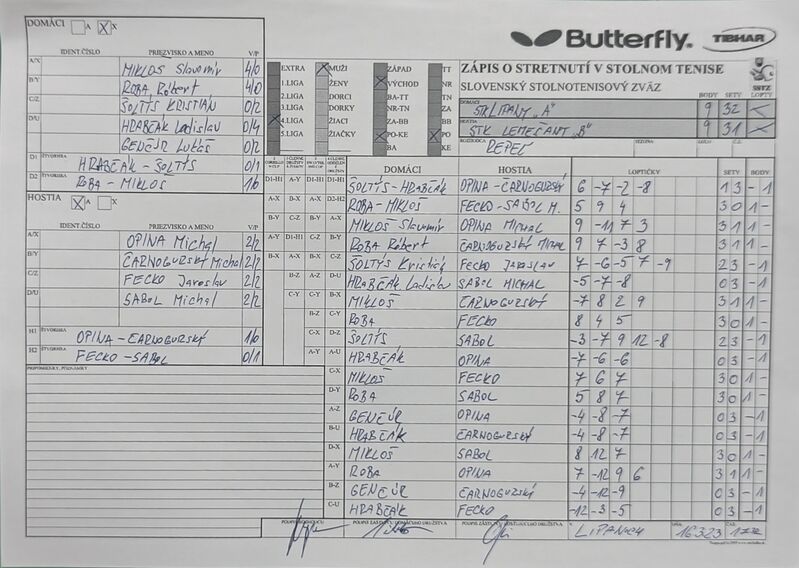 DOMÁCI A X
Butterfly. TIBHAR
IDENT.ČÍSLO PRIEZVISKO A MENO V/P
A/X MIKLOŠ Slavomír 4/0
B/Y ROBA Róbert 4/0
C/Z ŠOLTÝS KRISTIÁN 0/2
D/U HRABČÁK Ladislav 0/4
GENČÚR Lukáš 0/2
D1 ŠTVORHRA HRABČÁK - ŠOLTÝS 0/1
D2 ŠTVORHRA ROBA - MIKLOŠ 1/0
EXTRA MUŽI ZÁPAD TT
1.LIGA ŽENY VÝCHOD NR
2.LIGA DORCI BA-TT TN
3.LIGA DORKY NR-TN ZA
4.LIGA ŽIACI ZA-BB BB
5.LIGA ŽIAČKY PO-KE PO
BA KE
ZÁPIS O STRETNUTÍ V STOLNOM TENISE
SLOVENSKÝ STOLNOTENISOVÝ ZVÄZ
SSTZ
BODY SETY LOPTY
DOMÁCI "A" 9 32
HOSTIA STK "B" 9 31
ROZHODCA
HOSTIA A X
IDENT.ČÍSLO PRIEZVISKO A MENO V/P
A/X OPINA Michal 2/2
B/Y ČARNOGURSKÝ Michal 2/2
C/Z FECKO Jaroslav 2/2
D/U SABOL Michal 2/2
H1 ŠTVORHRA OPINA - ČARNOGURSKÝ 1/0
H2 ŠTVORHRA FECKO - SABOL 0/1
PRIPOMIENKY, POZNÁMKY
DOMÁCI HOSTIA LOPTIČKY SETY BODY
D1-H1 A-Y D1-H1 D1-H1 ŠOLTÝS - HRABČÁK OPINA - ČARNOGURSKÝ 6 -7 -2 -8 1 3 - 1
A-X B-X A-X D2-H2 ROBA - MIKLOŠ FECKO - SABOL M. 5 9 4 3 0 1 -
B-Y C-Z B-Y A-X MIKLOŠ Slavomír OPINA Michal 9 -11 7 3 3 1 1 -
A-Y D1-H1 C-Z B-Y ROBA Róbert ČARNOGURSKÝ MICHAL 9 7 -3 8 3 1 1 -
B-X A-X B-X C-Z ŠOLTÝS Kristián FECKO JAROSLAV 7 -6 -5 7 -9 2 3 - 1
B-Z A-Z D-U HRABČÁK Ladislav SABOL MICHAL -5 -7 -8 0 3 - 1
C-Y C-Y B-X MIKLOŠ ČARNOGURSKÝ -7 8 2 9 3 1 1 -
B-Z C-Y ROBA FECKO 8 4 5 3 0 1 -
C-X D-Z ŠOLTÝS SABOL -3 -7 9 12 -8 2 3 - 1
A-Y A-U HRABČÁK OPINA -7 -6 -6 0 3 - 1
C-X MIKLOŠ FECKO 7 6 7 3 0 1 -
D-Y ROBA SABOL 5 8 7 3 0 1 -
A-Z GENČÚR OPINA -4 -8 -7 0 3 - 1
B-U HRABČÁK ČARNOGURSKÝ -4 -8 -7 0 3 - 1
D-X MIKLOŠ SABOL 8 12 7 3 0 1 -
A-Y ROBA OPINA 7 -12 9 6 3 1 1 -
B-Z GENČÚR ČARNOGURSKÝ -4 -12 -9 0 3 - 1
C-U HRABČÁK FECKO -12 -3 -5 0 3 - 1
PODPIS ROZHODCU PODPIS ZÁSTUPCU DOMÁCEHO DRUŽSTVA PODPIS ZÁSTUPCU HOSŤUJÚCEHO DRUŽSTVA LIPANOCH